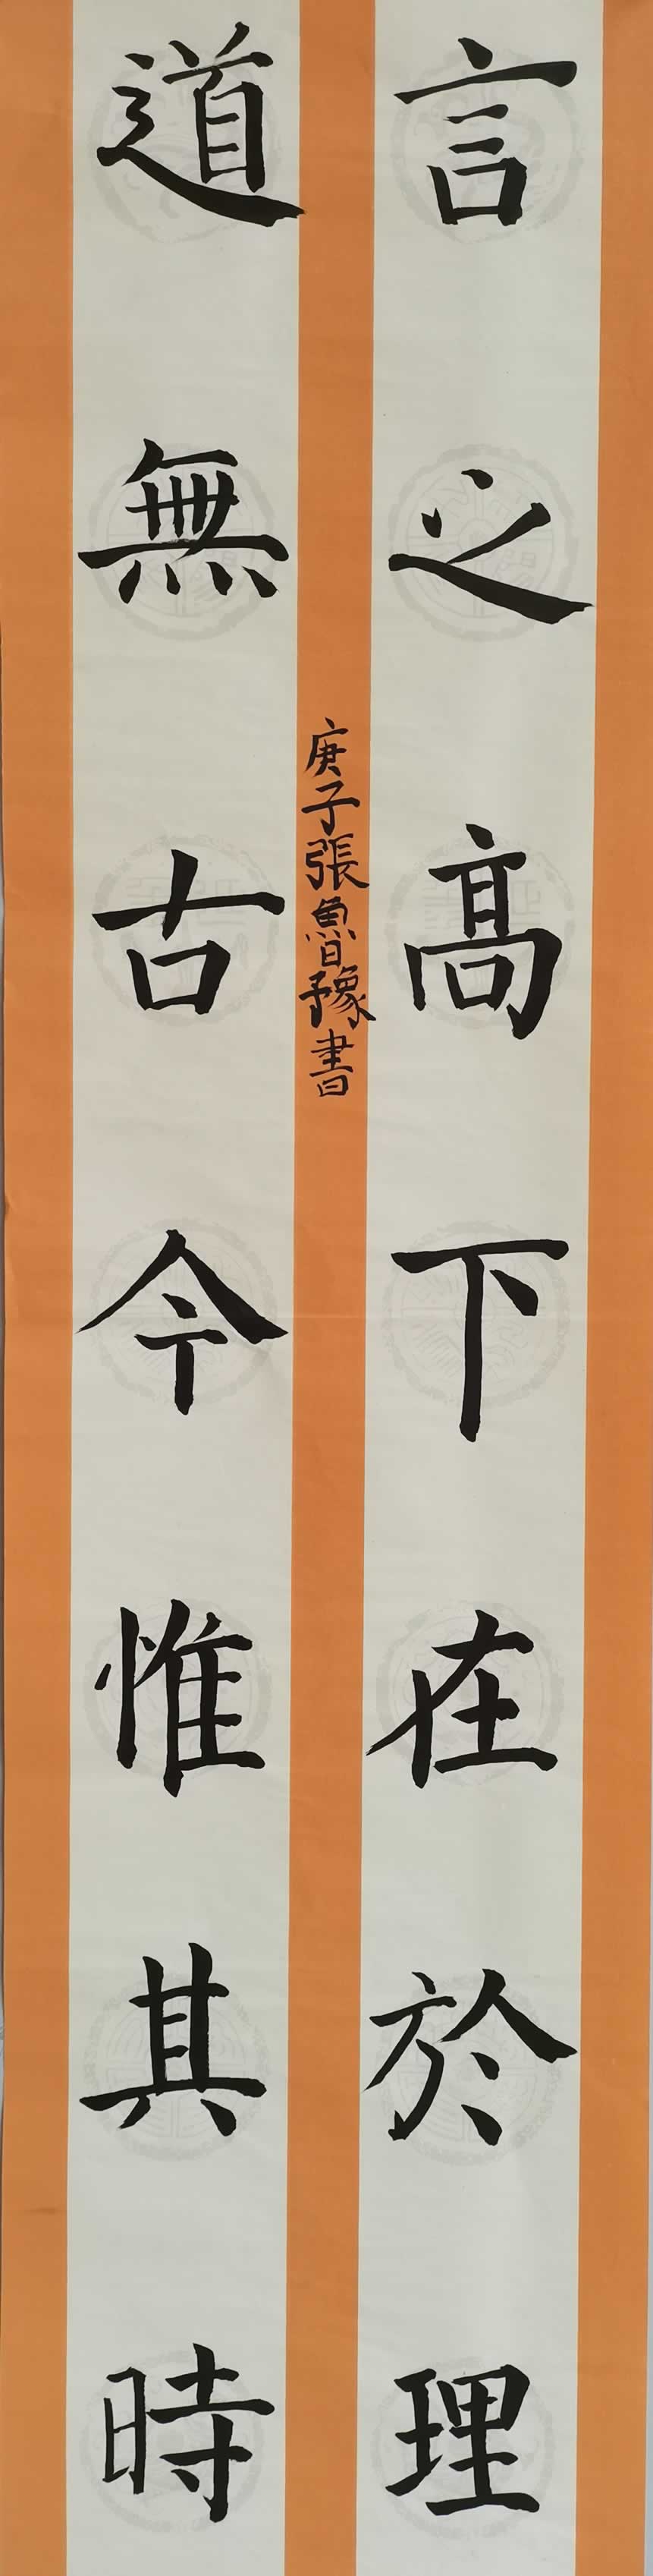 言之高下在於理
道無古今惟其時
庚子張魯豫書